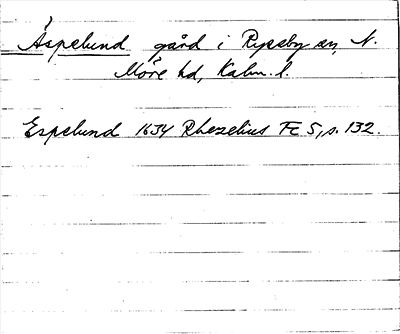 Äspelund gård i Ryssby sn, N.
Möre hd, Kalm. l.
Espelund 1634 Rhezelius Fc 5, s. 132.